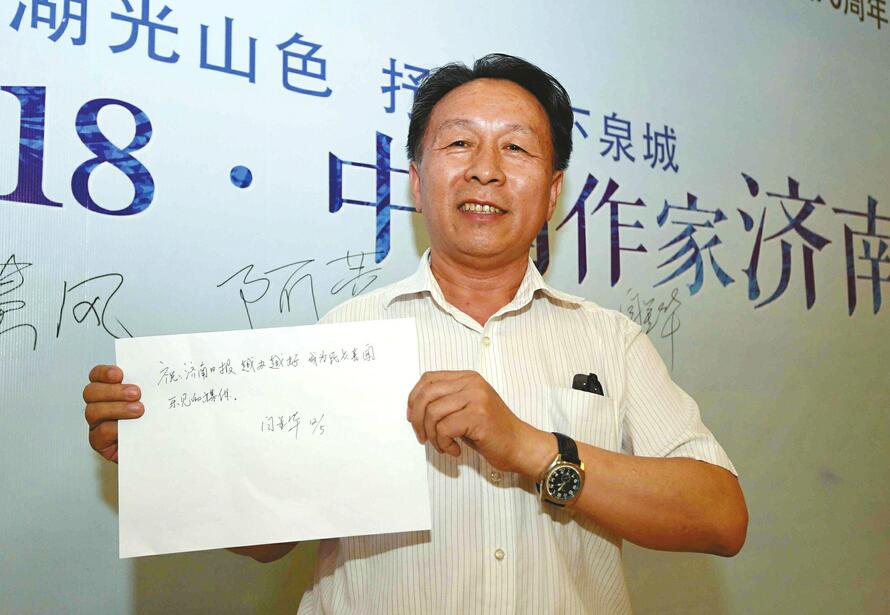 周年
湖光山色 抒 下泉城
18·中 作家济南
阿莹
祝济南日报越办越好 成为民众喜闻
乐见的媒体。